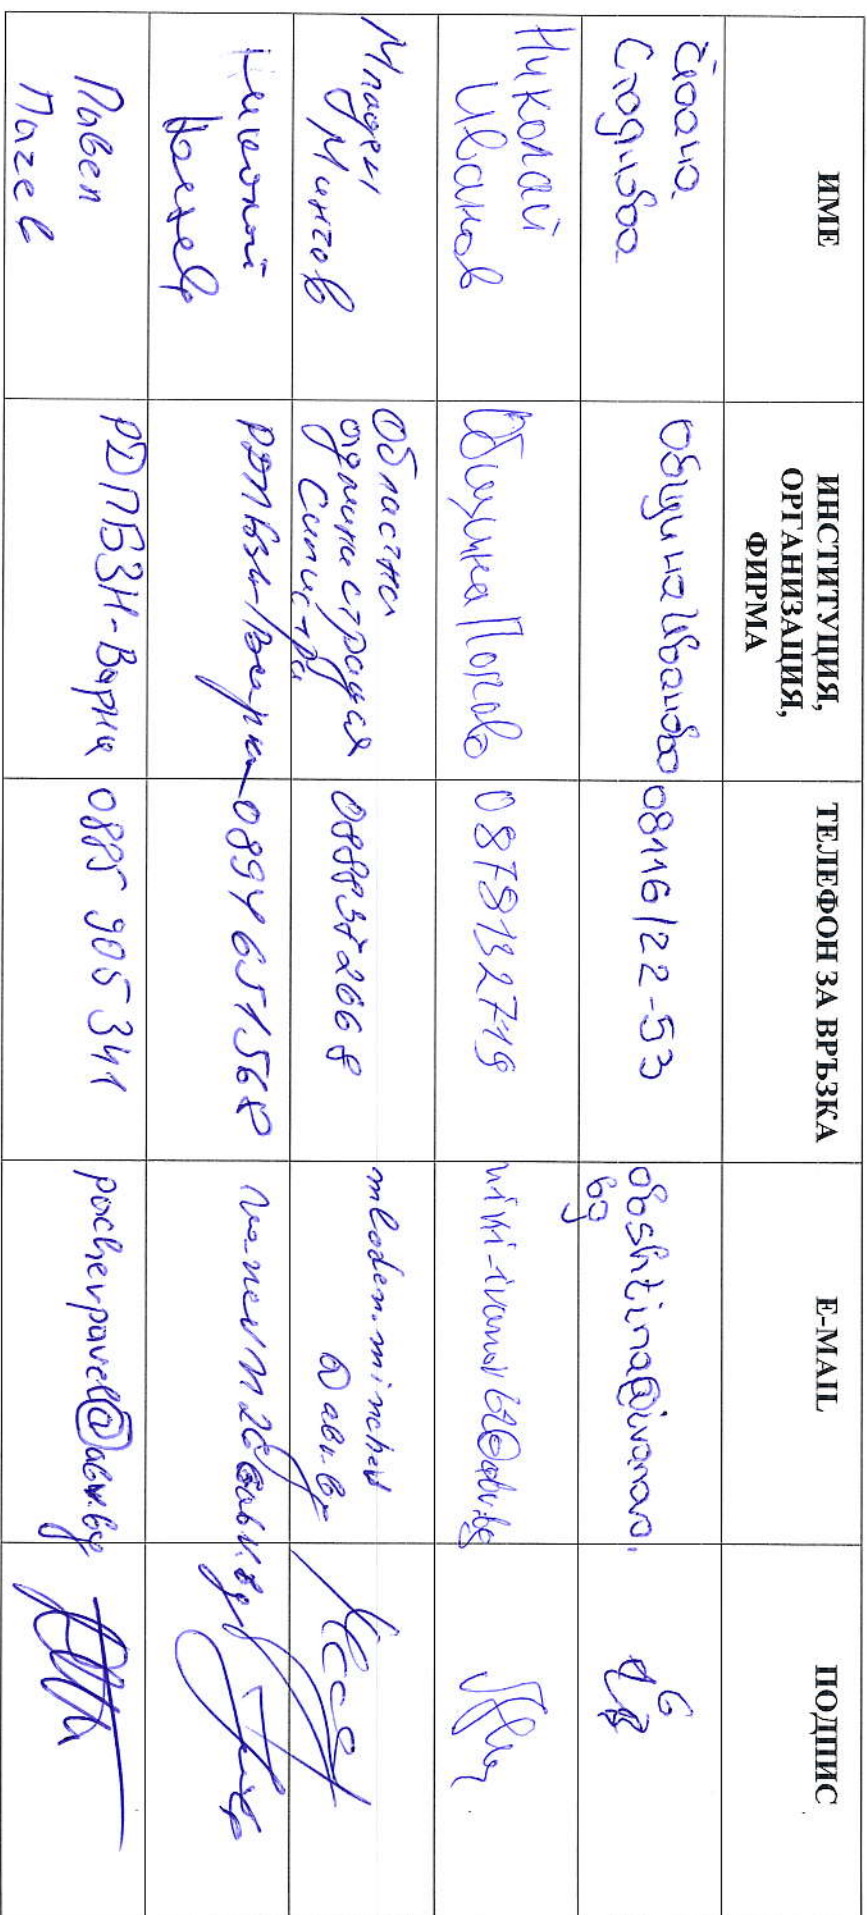 ИМЕ
ИНСТИТУЦИЯ,
ОРГАНИЗАЦИЯ,
ФИРМА
ТЕЛЕФОН ЗА ВРЪЗКА
E-MAIL
ПОДПИС
Община Иваново
08116/22-53
obshtina@ivanovo.
bg
Николай
Иванов
Община Попово
0878132719
niki-ivanov62@abv.bg
Младен
Минчев
Областна
администрация
Силистра
0888372668
mladen.minchev
@abv.bg
0894651568
Павел
Пачев
РДПБЗН-Варна
0885 905 341
pachevpavel@abv.bg